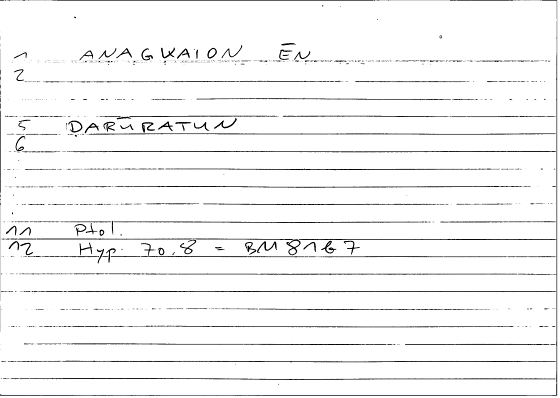 1 ANAGKAION ĒN
2
5 ḌARŪRATUN
6
11 Ptol.
12 Hyp. 70.8 = BM 81b7